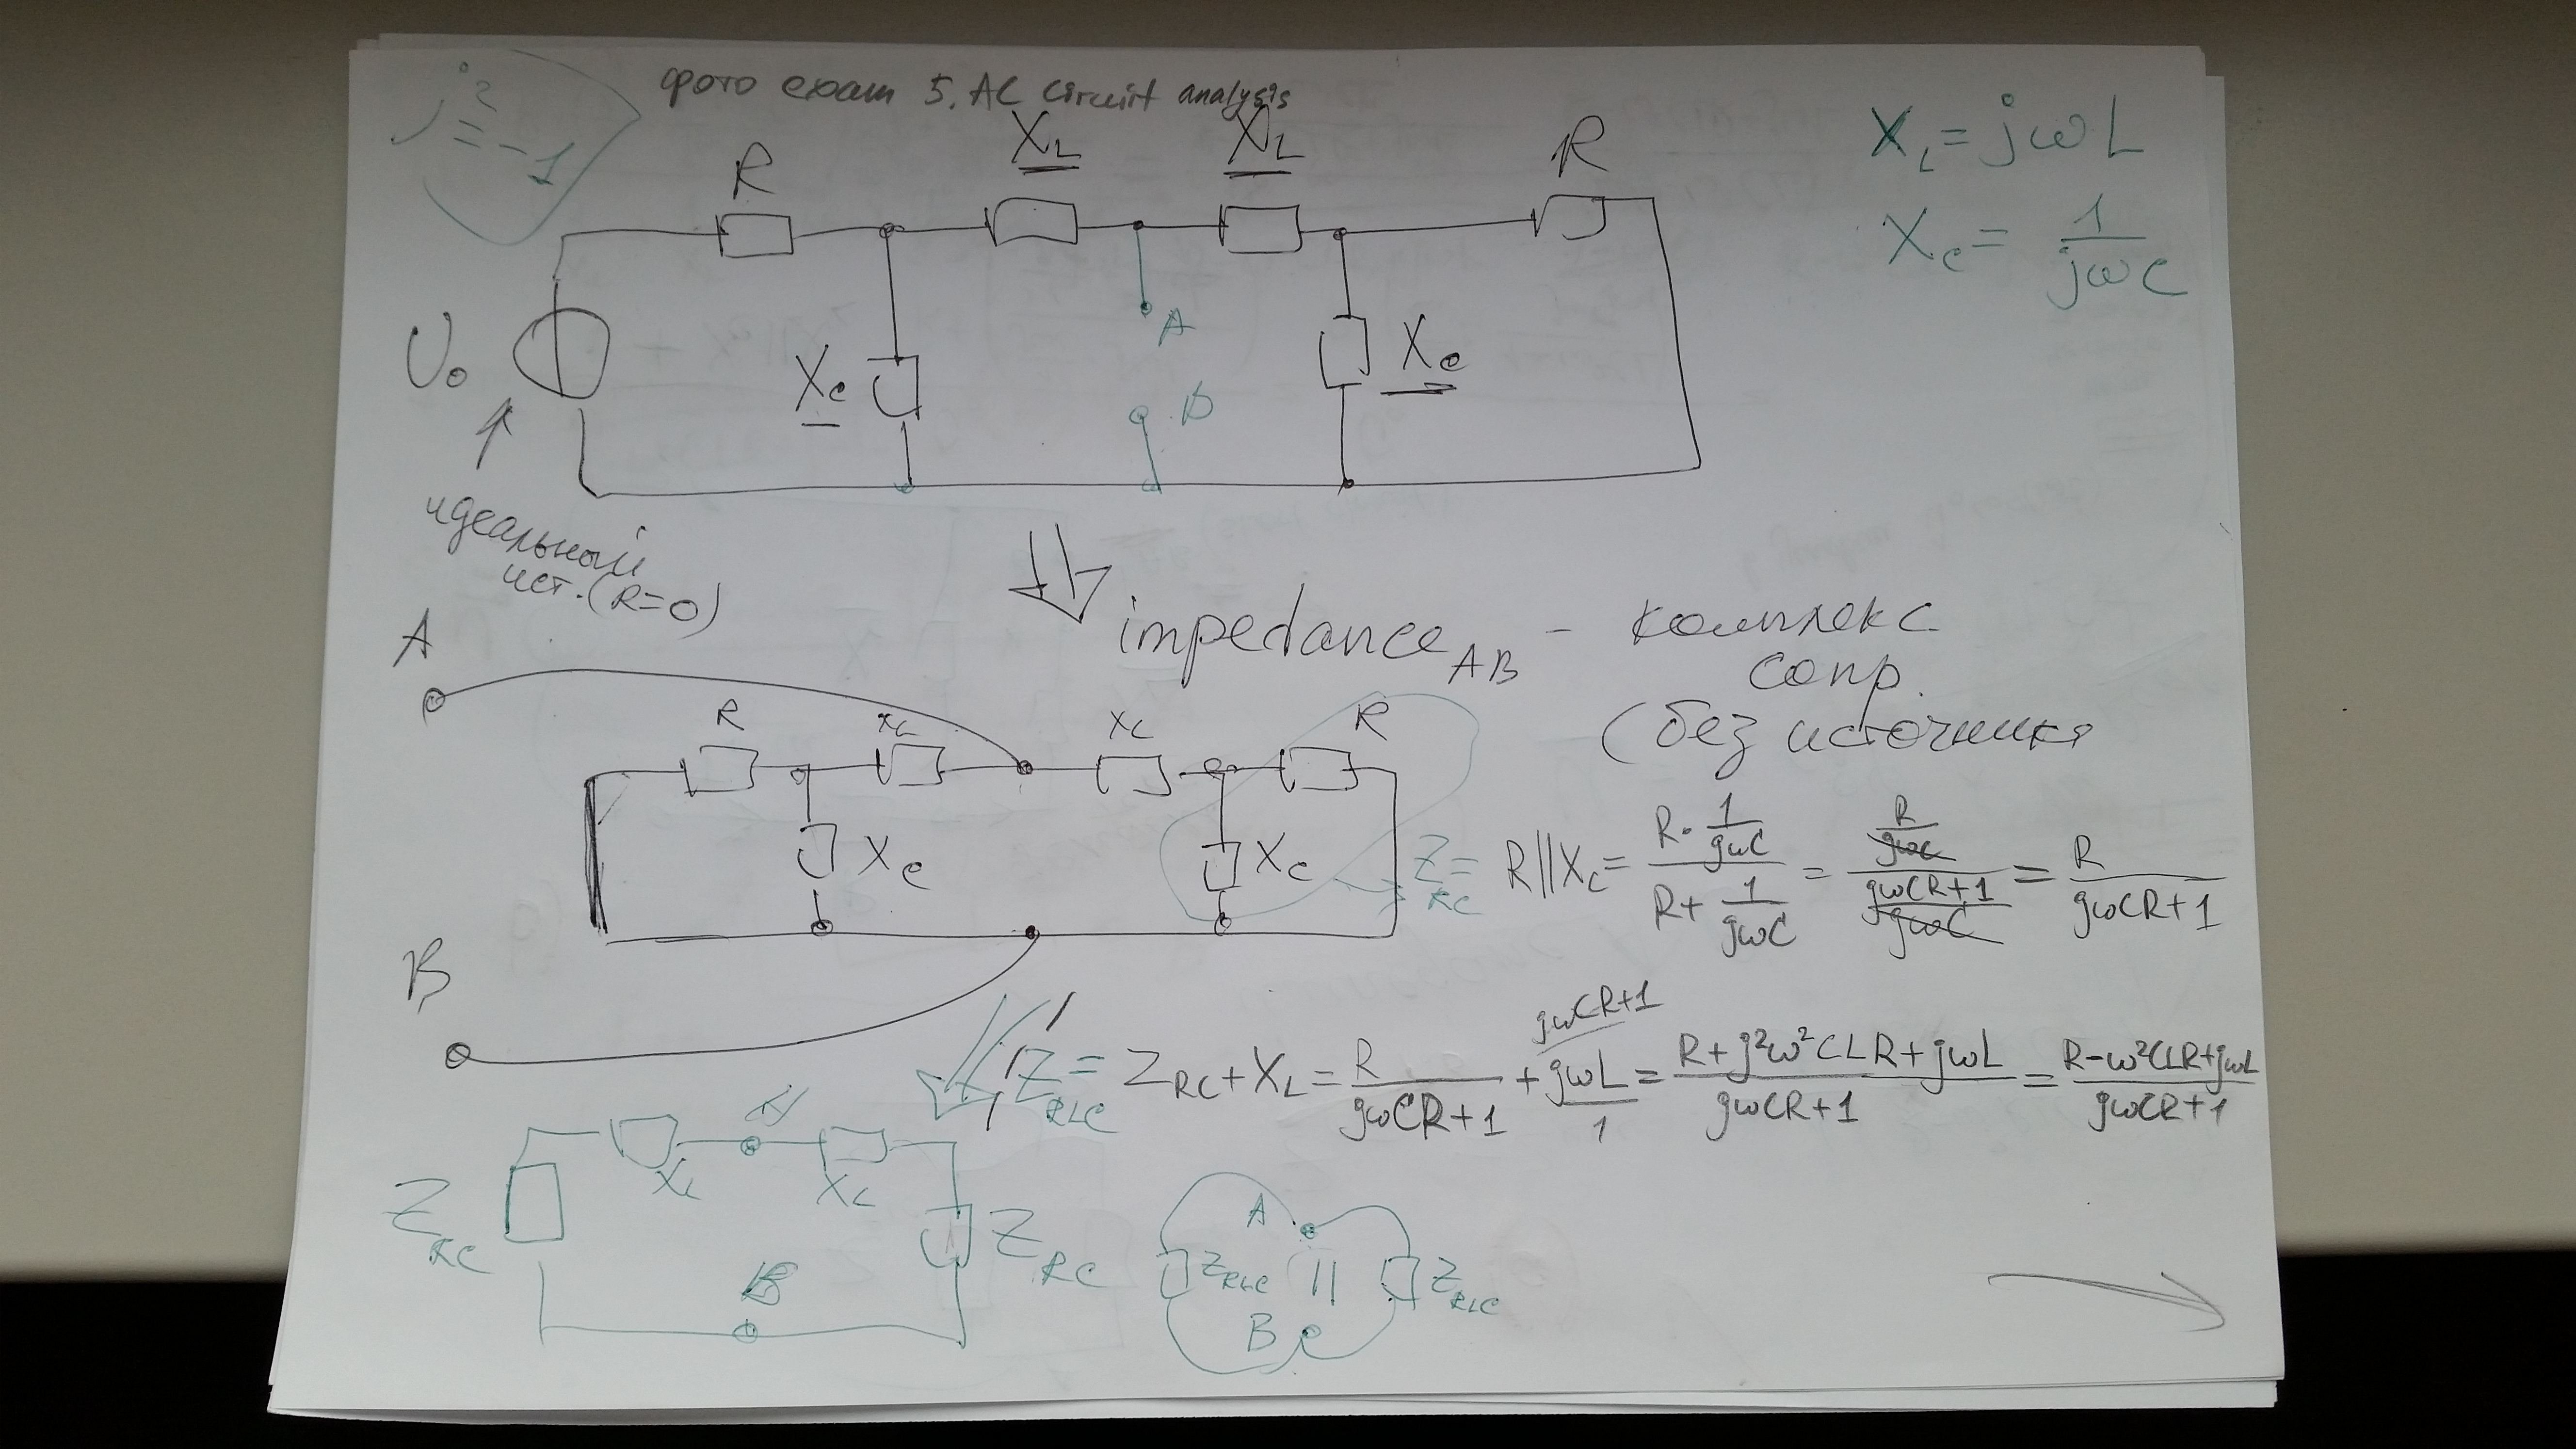 фото exam 5. AC circuit analysis
j² = -1
R
X_L
X_L
R
X_L = jωL
X_C = 1/(jωC)
U₀
X_C
A
B
X_C
идеальный
ист. (R=0)
impedance_AB - комплекс
сопр.
(без источника
A
R
X_L
X_L
R
X_C
X_C
B
Z_RC = R||X_C = (R · 1/(jωC))/(R + 1/(jωC)) = (R/(jωC))/((jωCR+1)/(jωC)) = R/(jωCR+1)
Z_RLC = Z_RC + X_L = R/(jωCR+1) + jωL/1 = (R + j²ω²CLR + jωL)/(jωCR+1) = (R - ω²CLR + jωL)/(jωCR+1)
jωCR+1
A
X_L
X_L
Z_RC
Z_RC
B
A
Z_RLC || Z_RLC
B